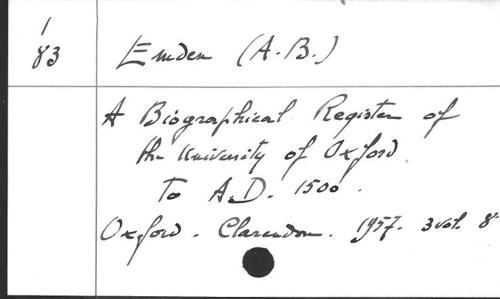 1
83
Emden (A.B.)
A Biographical Register of
the University of Oxford
to A.D. 1500.
Oxford. Clarendon. 1957. 3 vol. 8°